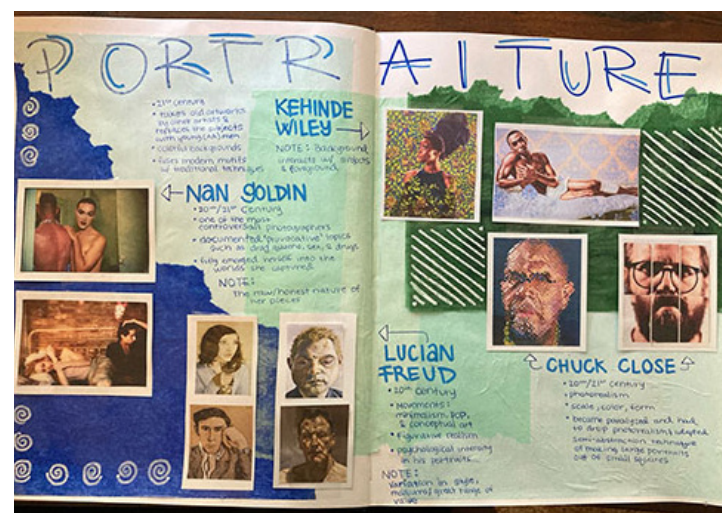 PORTRAITURE
• 21st century
• takes old artworks
by other artists &
replaces the subjects
with young (AA) men
• colorful backgrounds
• fuses modern motifs
w/ traditional techniques
KEHINDE
WILEY
NOTE: Background
interacts w/ subjects
& foreground
NAN GOLDIN
• 20th/21st Century
• one of the most
controversial photographers
• documented "provocative" topics
such as drag queens, sex, & drugs
• fully emerged herself into the
worlds she captured
NOTE:
The raw/honest nature of
her pieces
LUCIAN
FREUD
• 20th century
• Movements:
minimalism, POP,
& conceptual art
• Figurative realism
• psychological intensity
in his portraits
NOTE:
variation in style,
mediums/great range of
value
CHUCK CLOSE
• 20th/21st century
• photorealism
• scale, color, form
• became paralyzed and had
to drop photorealism, adopted
semi-abstraction technique
of making large portraits
out of small squares